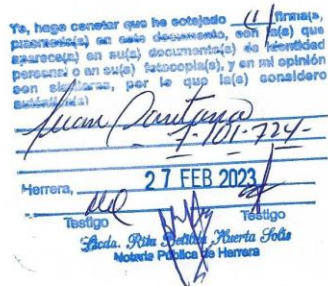 Yo, hago constar que he cotejado (1) firma(s),
plasmada(s) en este documento, con la(s) que
aparece(n) en su(s) documento(s) de identidad
personal o en su(s) fotocopia(s), y en mi opinión
son similares, por lo que la(s) considero
auténtica(s)
Juan Santana
7-101-724-
Herrera, 27 FEB 2023
Testigo Testigo
Licda. Rita Huerta Solís
Notaria Pública de Herrera